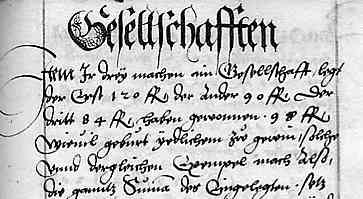 Gesellschafften
Item Jr drey machen ain Gesellschafft, legt
der Erst 120 fl. der Ander 90 fl. Der
dritt 84 fl. haben gewonnen. 98 fl.
Wieuil geburt yedlichem zů gewin, solche
vnnd dergleichen Exempel mach Also,
die ganntz Suma des Eingelegten. setz